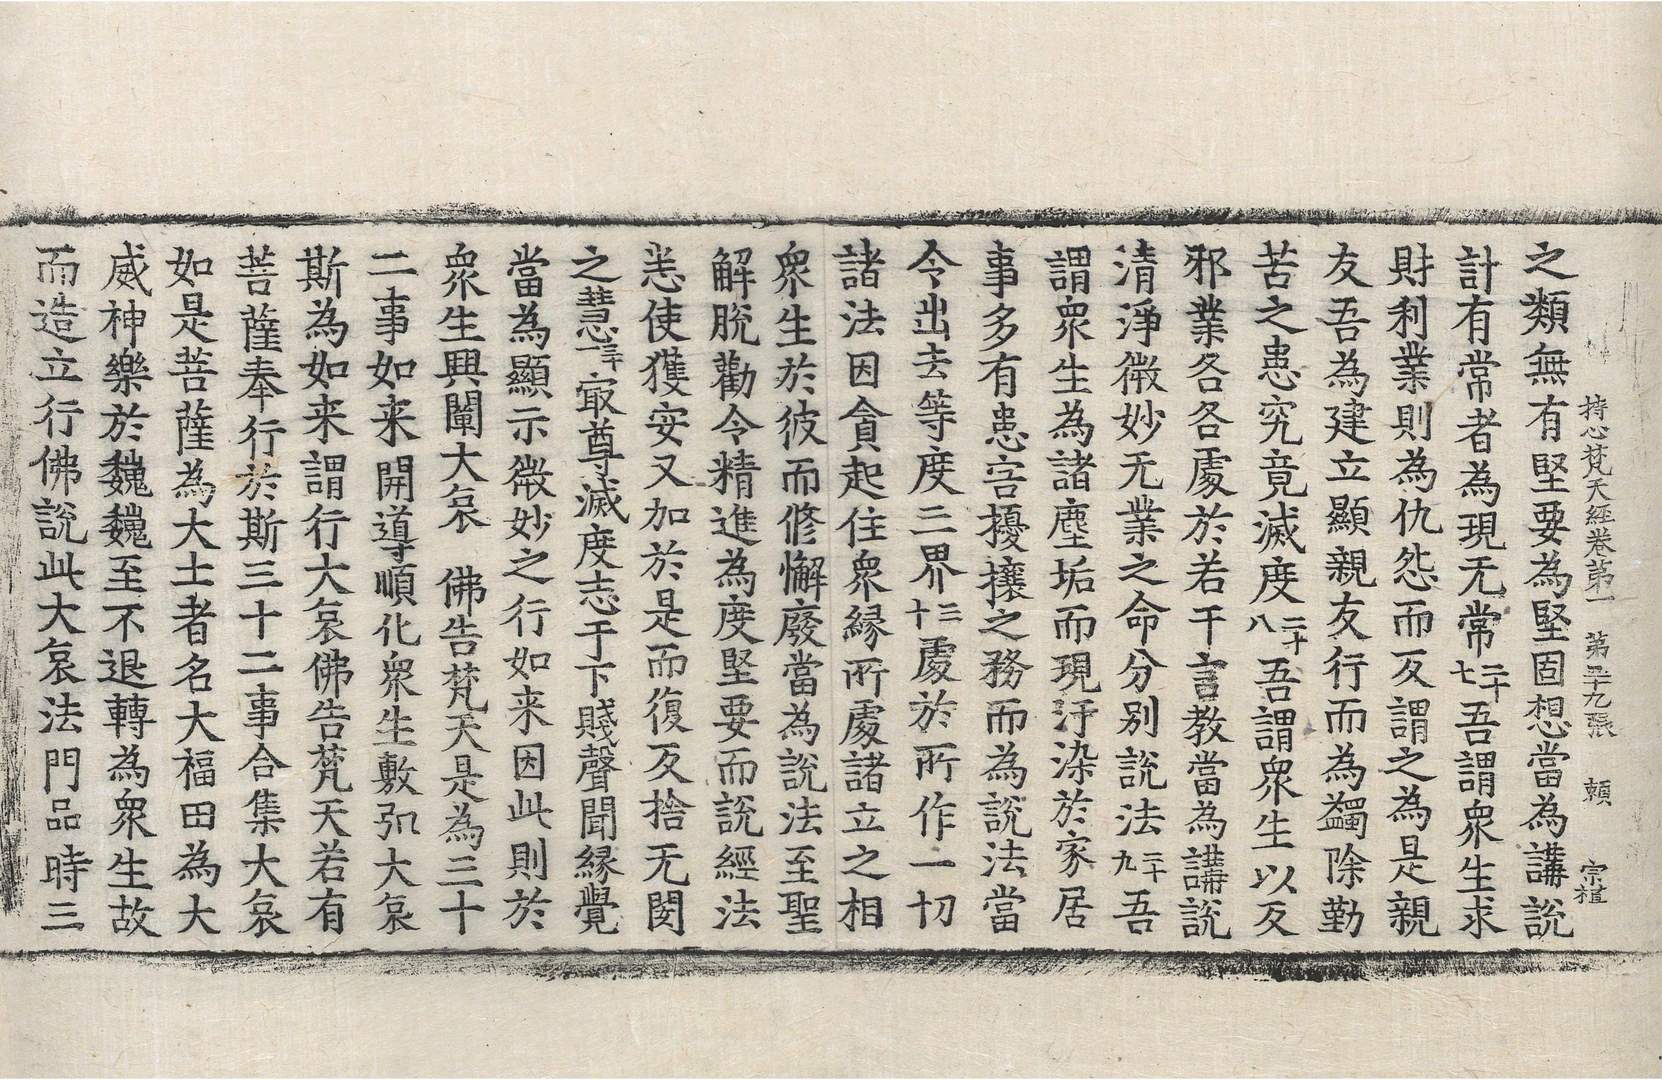 持心梵天經卷第一 第三十九張 賴 宗植
之類無有堅要為堅固想當為講說
計有常者為現无常二十七吾謂衆生求
財利業則為仇怨而反謂之為是親
友吾為建立顯親友行而為蠲除勤
苦之患究竟滅度二十八吾謂衆生以反
邪業各各處於若干言教當為講說
清淨微妙无業之命分別說法二十九吾
謂衆生為諸塵垢而現汙染於家居
事多有患害擾攘之務而為說法當
令出去等度三界三十處於所作一切
諸法因貪起住衆緣所處諸立之相
衆生於彼而脩懈廢當為說法至聖
解脫勸令精進為度堅要而說經法
悉使獲安又加於是而復反捨无閡
之慧三十一㝡尊滅度志于下賤聲聞緣覺
當為顯示微妙之行如来因此則於
衆生興闡大哀 佛告梵天是為三十
二事如来開導順化衆生敷弘大哀
斯為如来謂行大哀佛告梵天若有
菩薩奉行於斯三十二事合集大哀
如是菩薩為大士者名大福田為大
威神樂於巍巍至不退轉為衆生故
而造立行佛說此大哀法門品時三